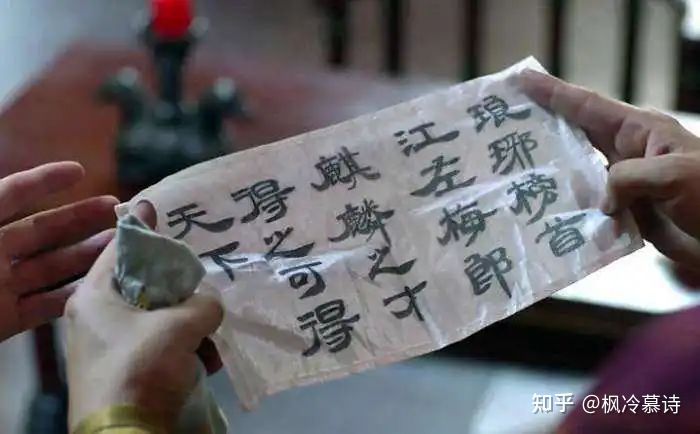 琅琊榜首
江左梅郎
麒麟之才
得之可得
天下
知乎 @枫冷慕诗